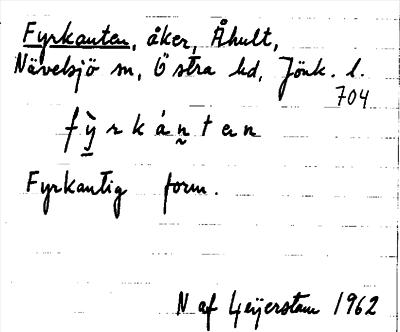 Fyrkanten, åker, Åhult,
Nävelsjö sn, Östra hd, Jönk. l.
704
fỳ̱rkán̰ten
Fyrkantig form.
N af Geijerstam 1962